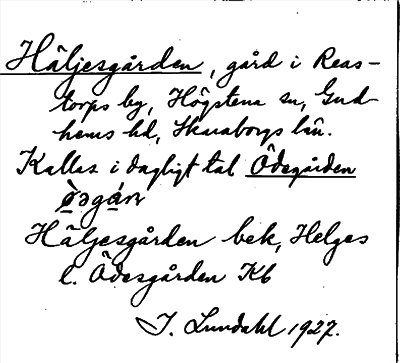 Häljesgården, gård i Reas-
torps by, Högstena sn, Gud-
hems hd, Skaraborgs län.
Kallas i dagligt tal Ödegården
Häljesgården bek, Helges
l. Ödesgården Kb
I. Lundahl 1927.